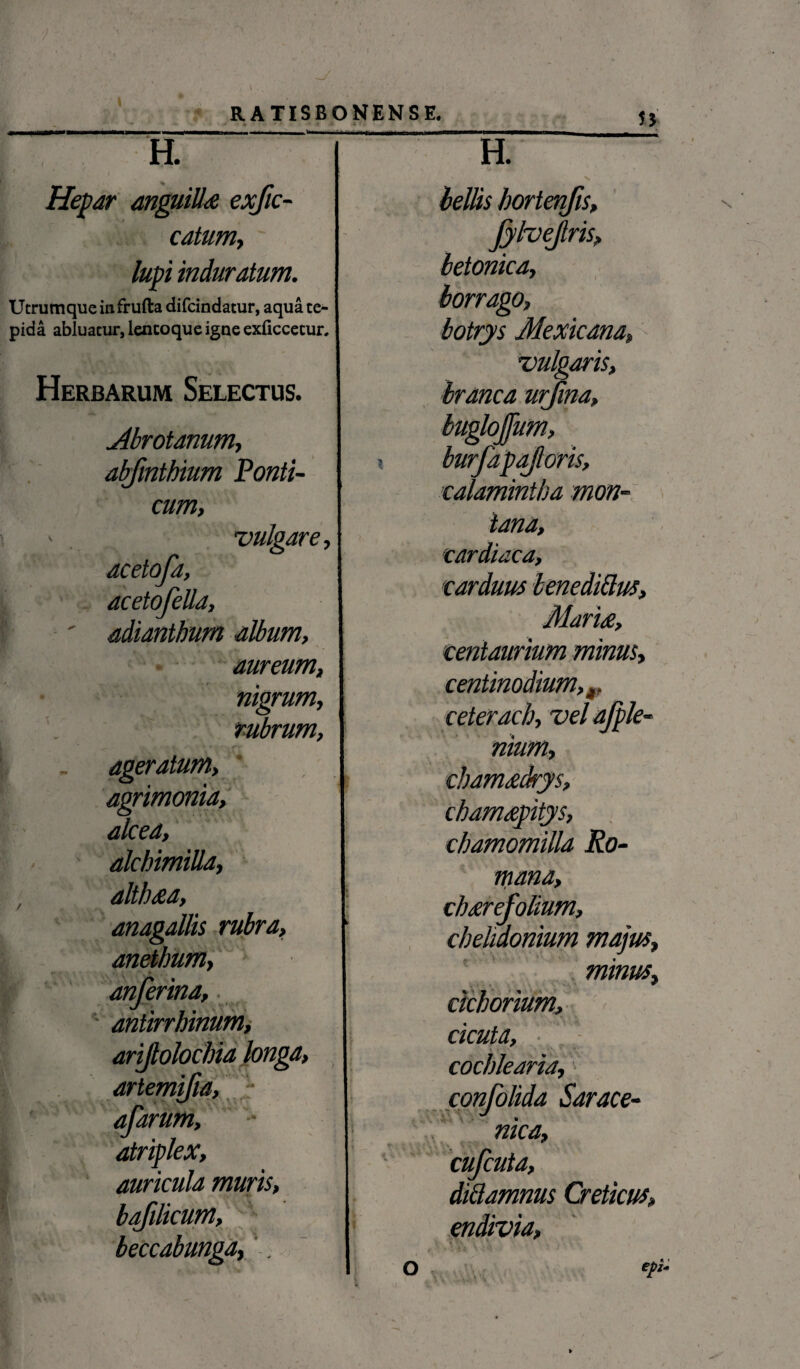 RATISBONENSE. 53
H.
Hepar anguillæ exſic-
catum,
lupi induratum.
Utrumque in fruſta diſcindatur, aquâ te-
pidâ abluatur, lentoque igne exſiccetur.
HERBARUM SELECTUS.
Abrotanum,
abſinthium Ponti-
cum,
vulgare,
acetoſa,
acetoſella,
adianthum album,
aureum,
nigrum,
rubrum,
ageratum,
agrimonia,
alcea,
alchimilla,
althæa,
anagallis rubra,
anethum,
anſerina,
antirrhinum,
ariſtolochia longa,
artemiſia,
aſarum,
atriplex,
auricula muris,
baſilicum,
beccabunga,
H.
bellis hortenſis,
ſylveſtris,
betonica,
borrago,
botrys Mexicana,
vulgaris,
branca urſina,
bugloſſum,
burſa paſtoris,
calamintha mon-
tana,
cardiaca,
carduus benedictus,
Mariæ,
centaurium minus,
centinodium,
ceterach, vel aſple-
nium,
chamædrys,
chamæpitys,
chamomilla Ro-
mana,
chærefolium,
chelidonium majus,
minus,
cichorium,
cicuta,
cochlearia,
conſolida Sarace-
nica,
cuſcuta,
dictamnus Creticus,
endivia,
O epi-